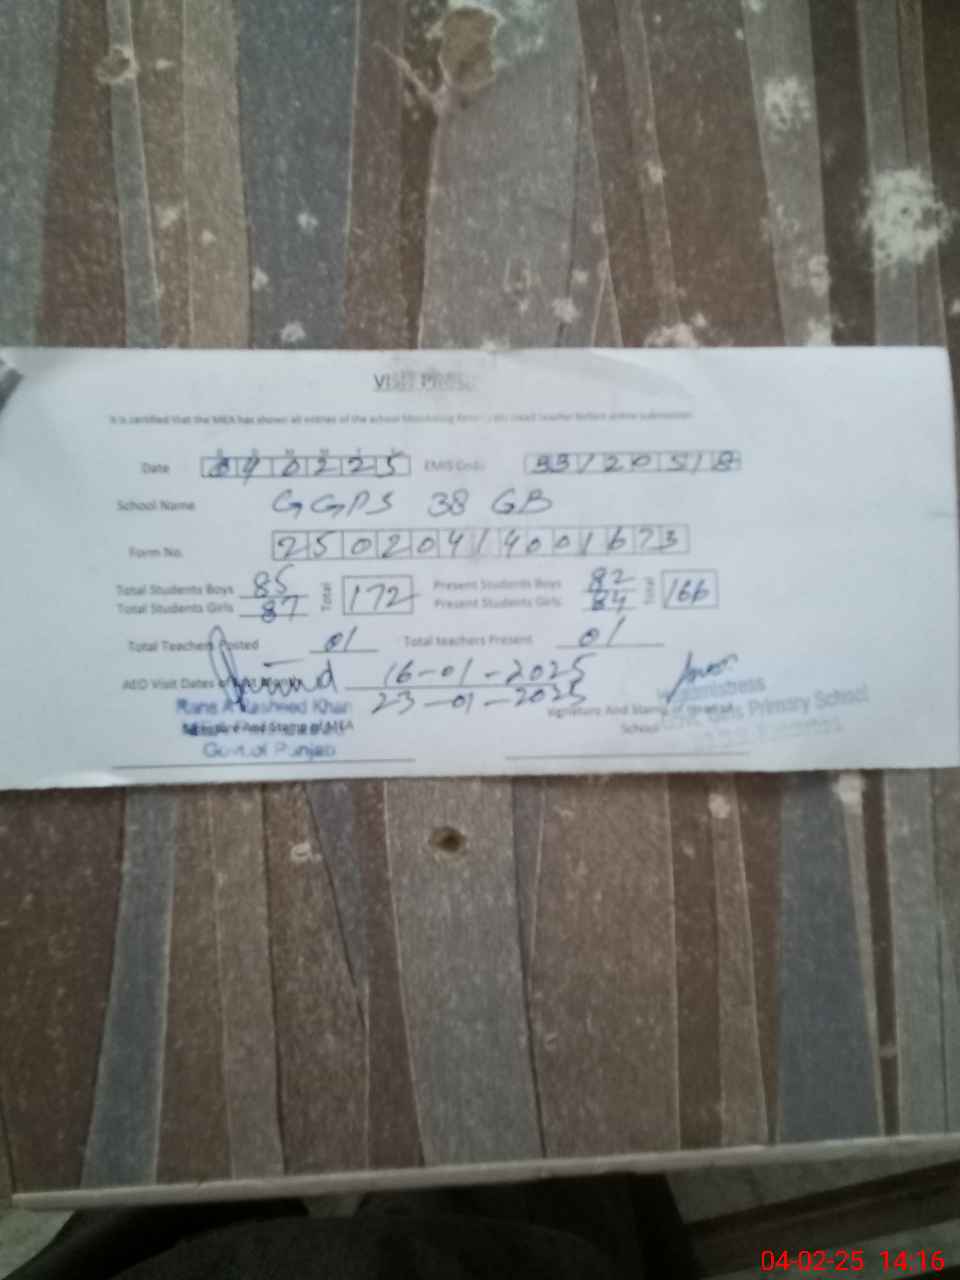 Visit Proforma
It is certified that the MEA has shown all entries of the school Monitoring Form to head teacher before online submission
Date 040225 EMIS Code 33120518
School Name GGPS 38 GB
Form No. 25020414001673
Total Students Boys 85 Total 172 Present Students Boys 82 Total 166
Total Students Girls 87 Present Students Girls 84
Total Teachers Posted 01 Total teachers Present 01
AEO Visit Dates of 16-01-2025
23-01-2025
Rana A Rasheed Khan
Signature And Stamp of MEA
Govt. of Punjab
Signature And Stamp of
School
Headmistress
Govt. Girls Primary School
04-02-25 14:16